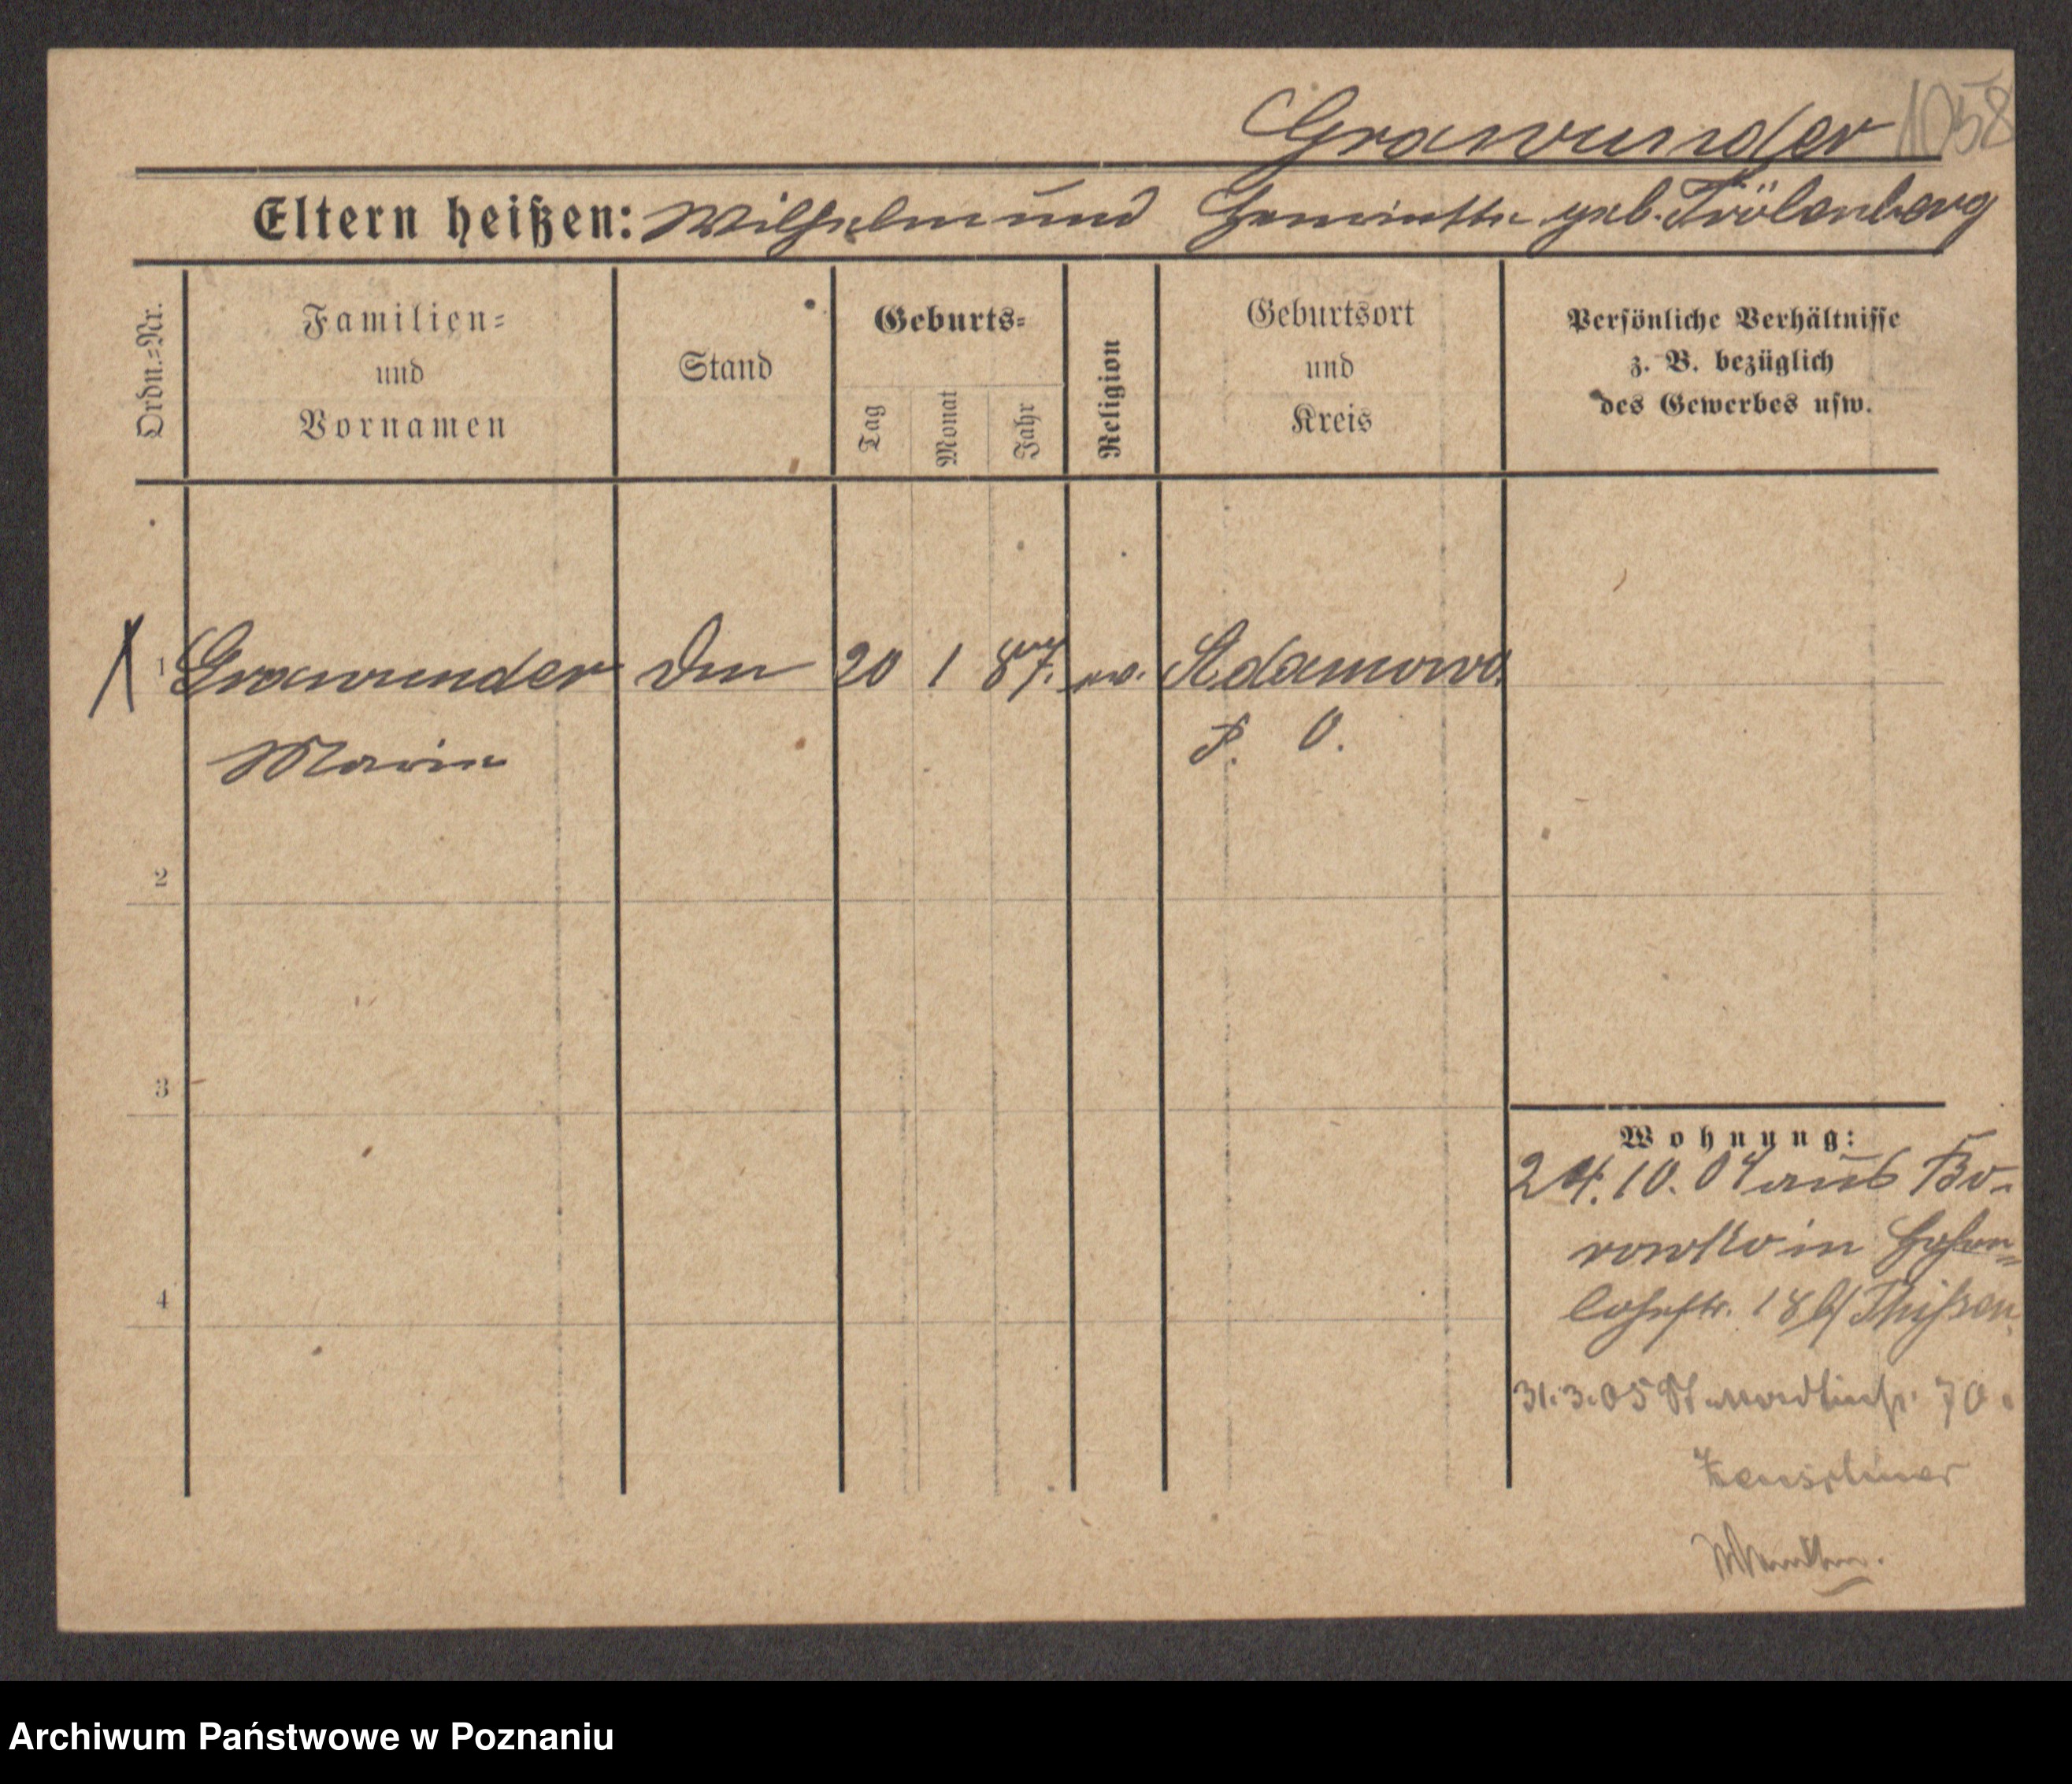 Grawunder 1058
Eltern heißen: Wilhelm und Henriette geb. Trölenberg
Ordn.=Nr.
Familien=
und
Vornamen
Stand
Geburts=
Tag
Monat
Jahr
Religion
Geburtsort
und
Kreis
Persönliche Verhältnisse
z. B. bezüglich
des Gewerbes usw.
1 Grawunder 20 1 87. ev. Adamowo
Marie P. O.
2
3
4
Wohnung:
24.10.04 aus Bo-
rowko in Hohen=
lohestr. 18 b/ Thißen
31.3.05 70.